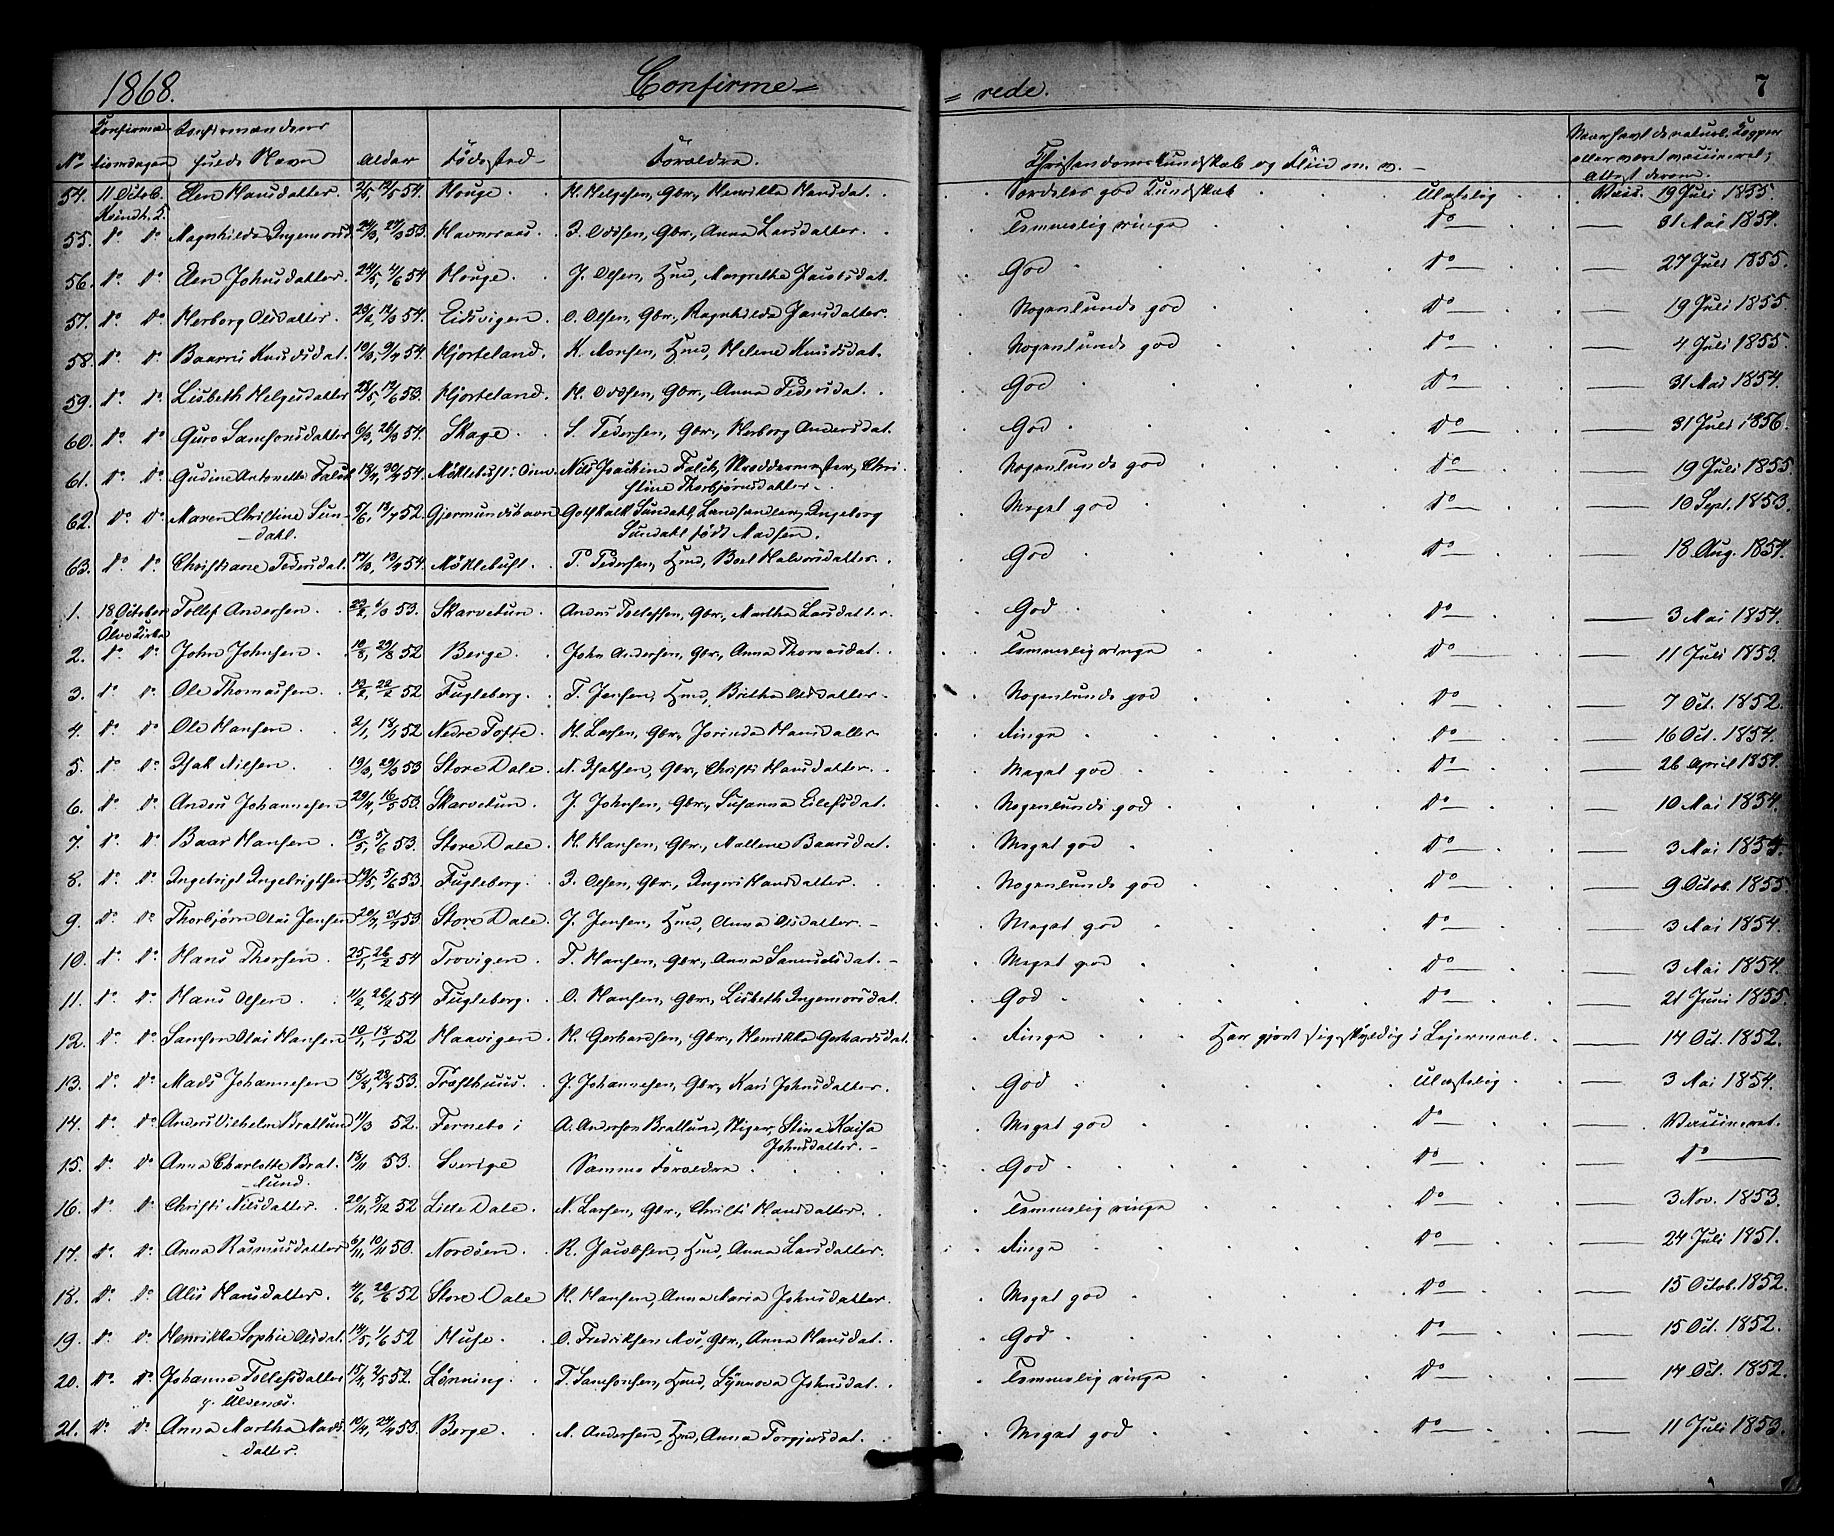 1868. Confirme= = rede. 7
No Confirma- tionsdagen Confirmandens fulde Navn Alder Fødested Forældre. Christendomskundskab og Flid m. v. Naar havt de naturl. Kopper eller været vaccineret; Attest derom.
54. 11 Octob. Elen Hansdatter. 54. Houge. H. Helgesen, Gbr., Henrikke Hansdat. Særdeles god Kundskab Ulastelig Vacc. 19 Juli 1855.
Kvindh. K.
55. do do Magnhilde Ingemorsd. 53. Havneraas. I. Oddsen, Gbr., Anna Larsdatter. Temmelig ringe Do 31 Mai 1854.
56. do do Elen Johnsdatter 54 Houge. J. Olsen, Hmd, Margrethe Jacobsdat. God Do 27 Juli 1855.
57. do do Herborg Olsdatter. 54. Eidsvigen. O. Olsen, Gbr., Ragnhilda Jansdatter. Nogenlunde god Do 19 Juli 1855
58. do do Baarni Knudsdat. 54. Hjorteland. K. Monsen, Hmd, Helene Knudsdat. Nogenlunde god Do 4 Juli 1855.
59. do do Lisbeth Helgesdatter 53. Hjorteland. H. Oddsen, Gbr., Anna Pedersdat. God Do 31 Mai 1854.
60. do do Guro Samsonsdatter 54. Skage. S. Pedersen, Gbr., Herborg Andersdat. God Do 31 Juli 1856.
61. do do Gudine Antonette Falch 54. Møklebust: Nils Joachim Falch, Skreddermester, Chri- Nogenlunde god Do 19 Juli 1855
stine Thorbjørnsdatter.
62. do do Maren Christine Sun- 52. Gjermundshavn Gotskalk Sundahl, Landhandler, Ingeborg Meget god Do 10 Sept. 1853.
dahl. Sundahl født Madsen.
63. do do Christiane Pedersdat. 54. Møklebust. P. Pedersen, Hmd, Boel Halvorsdatter. God Do 18 Aug. 1854.
1. 18 October Tollef Andersen. 53. Skarvetun. Anders Tollefsen, Gbr., Martha Larsdatter. God Do 3 Mai 1854.
Ølve Kirke
2. do do John Johnsen. 52 Berge. John Andersen, Gbr., Anna Thomasdat. Temmelig ringe Do 11 Juli 1853.
3. do do Ole Thomassen. 52 Fugleberg. T. Jensen, Hmd, Britha Olsdatter. Nogenlunde god Do 7 Oct. 1852.
4. do do Ole Hansen 2/1, 18/1 52 Nedre Tofte. H. Larsen, Gbr., Jorinda Hansdatter Ringe Do 16 Oct. 1854.
5. do do Isak Nilsen. 53 Store Dale. N. Isaksen, Gbr., Christi Hansdatter. Meget god Do 26 April 1854.
6. do do Anders Johannesen 53. Skarvetun. J. Johnsen, Gbr., Susanna Eilefsdat. Nogenlunde god Do 10 Mai 1854.
7. do do Baar Hansen 53. Store Dale. H. Hansen, Gbr., Mallene Baarsdat. Meget god Do 3 Mai 1854.
8. do do Ingebrigt Ingebrigtsen 53. Fugleberg. I. Olsen, Gbr., Ingeri Hansdatter. Nogenlunde god Do 9 Octob. 1855
9. do do Thorbjørn Olai Jensen 53 Store Dale. J. Jensen, Hmd, Anna Olsdatter. Meget god Do 3 Mai 1854.
10. do do Hans Thorsen. 25/1, 26/2 54 Trovigen. T. Hansen, Gbr., Anna Samuelsdat. Meget god Do 3 Mai 1854.
11. do do Hans Olsen. 54 Fugleberg. O. Hansen, Gbr., Lisbeth Ingemorsdat. God Do 21 Juni 1855.
12. do do Samson Olai Hansen 52 Haavigen. H. Gerhardsen, Gbr., Henrikka Gerhardsdat. Ringe Har gjort sig skyldig i Leiermaal. 14 Oct. 1852.
13. do do Mads Johannesen 53. Træsthuus. J. Johannesen, Gbr., Kari Johnsdatter. God Ulastelig 3 Mai 1854.
14. do do Anders Vilhelm Bratlund 11/3 52. Fernebo i A. Anderson Bratlund, Stiger, Stina Kaisa Meget god Do Vaccineret.
Johnsdatter.
15. do do Anna Charlotte Brat- 53. Sverige Samme Forældre God Do Do
lund.
16. do do Christi Nilsdatter. 20/11, 5/12 52 Lille Dale. N. Larsen, Gbr., Christi Hansdatter. Temmelig ringe Do 3 Nov. 1853.
17. do do Anna Rasmusdatter 50. Nordøen. R. Jacobsen, Hmd, Anna Larsdatter. Ringe Do 24 Juli 1851.
18. do do Alis Hansdatter. 4/6, 20/6 52 Store Dale H. Hansen, Anna Maria Johnsdatter. Meget god Do 15 Octob. 1852.
19. do do Henrikke Sophie Olsdat. 52 Huse. O. Fredriksen Gbr., Anna Hansdat. God Do 15 Oct. 1852.
20. do do Johanna Tollefsdatter 52. Lønning. T. Samsonsen, Hmd, Synnova Johnsdat. Temmelig ringe Do 14 Oct. 1852.
Ølvenæs.
21. do do Anna Martha Mads- 53. Berge. M. Andersen, Hmd, Anna Torgjersdat. Meget god Do 11 Juli 1853.
datter.